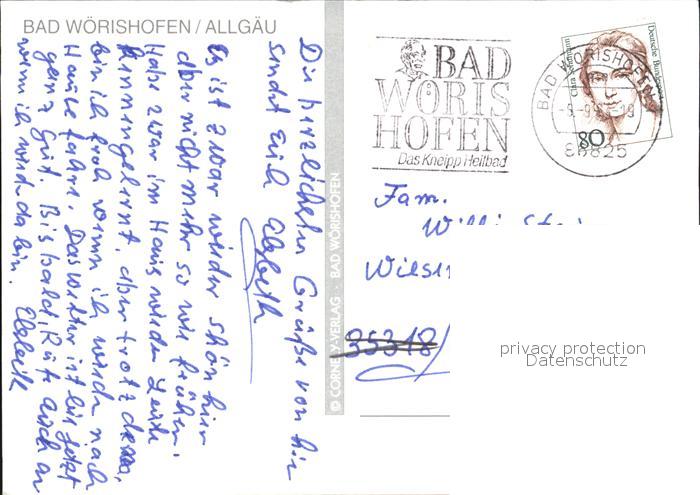 BAD WÖRISHOFEN / ALLGÄU
Die herzlichsten Grüße von hir
sendet Euch Elsbeth
Es ist zwar wieder schön hier
aber nicht mehr so wie früher.
Habe zwar im Haus wieder Leute
kennengelernt, aber trotzdem,
bin ich froh wenn ich wieder nach
Hause fahre. Das Wetter ist bis jetzt
ganz gut. Bis bald, Rufe auch an
wenn ich wieder da bin. Elsbeth
© CORNELY-VERLAG · BAD WÖRISHOFEN
BAD
WÖRIS
HOFEN
Das Kneipp Heilbad
BAD WÖRISHOFEN
86825
Deutsche Bundespost
80
Fam.
Willi
35318/
privacy protection
Datenschutz